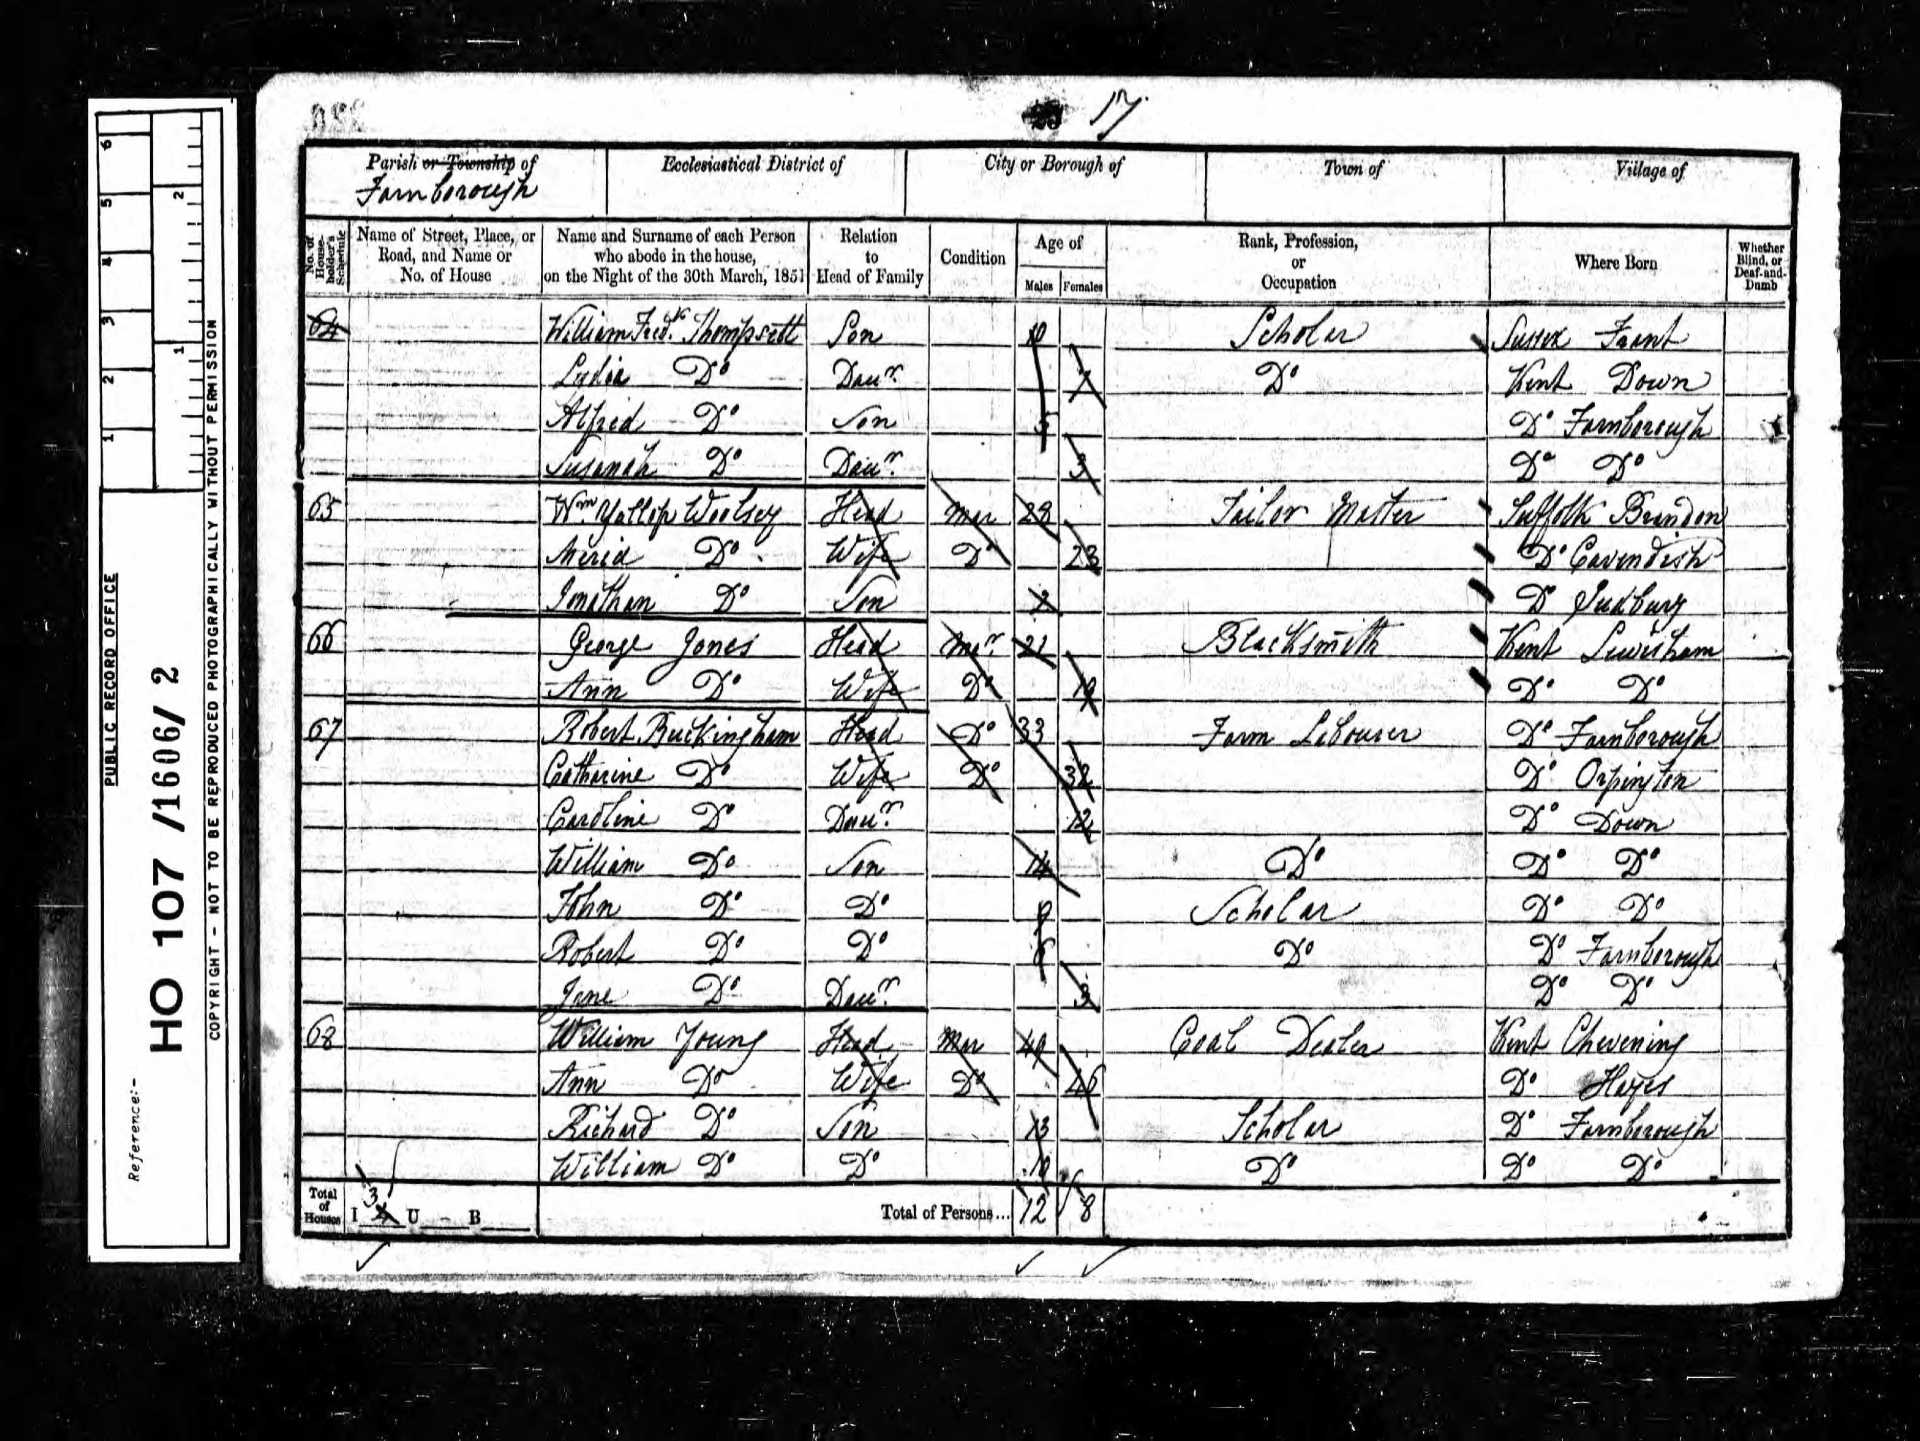 17
Parish or Township of
Farnborough
Ecclesiastical District of
City or Borough of
Town of
Village of
No. of House-holder's Schedule
Name of Street, Place, or Road, and Name or No. of House
Name and Surname of each Person who abode in the house, on the Night of the 30th March, 1851
Relation to Head of Family
Condition
Age of
Males
Females
Rank, Profession, or Occupation
Where Born
Whether Blind, or Deaf-and-Dumb
64 William Fredk. Thompsett Son 10 Scholar Sussex Frant
Lydia Do Daur. 7 Do Kent Down
Alfred Do Son 5 Do Farnborough
Susanah Do Daur. 3 Do Do
65 Wm Yallop Woolsey Head Mar 28 Tailor Master Suffolk Brandon
Do Wife Do 23 Do Cavendish
Jonathan Do Son 2 Do Sudbury
66 George Jones Head Mar. 21 Blacksmith Kent Lewisham
Ann Do Wife Do 19 Do Do
67 Robert Buckingham Head Do 33 Farm Labourer Do Farnborough
Catharine Do Wife Do 32 Do Orpington
Caroline Do Daur. 12 Do Down
William Do Son 14 Do Do Do
John Do Do 9 Scholar Do Do
Robert Do Do 6 Do Do Farnborough
Jane Do Daur. 3 Do Do
68 William Young Head Mar 49 Coal Dealer Kent Chevening
Ann Do Wife Do 46 Do Hayes
Richard Do Son 13 Scholar Do Farnborough
William Do Do 10 Do Do Do
Total of Houses I 3 4 U B Total of Persons... 12 8
6 5 4 3 2 1
2 1
PUBLIC RECORD OFFICE
Reference:-
HO 107 /1606/ 2
COPYRIGHT - NOT TO BE REPRODUCED PHOTOGRAPHICALLY WITHOUT PERMISSION